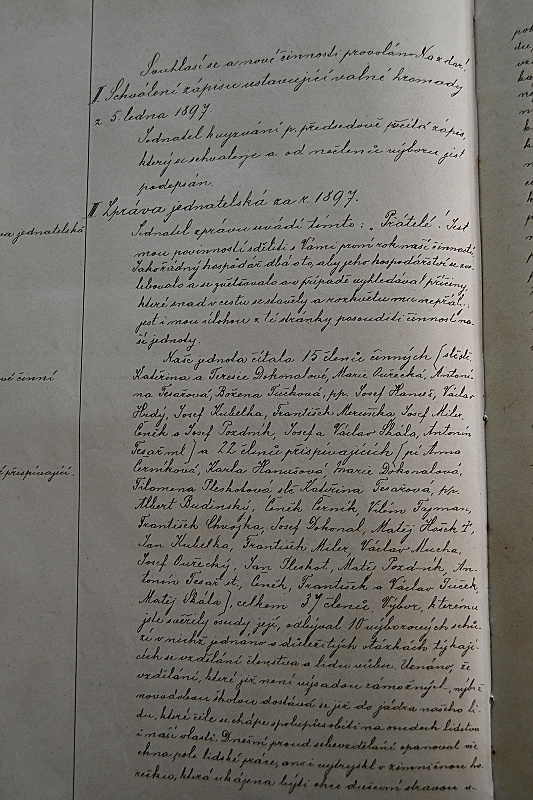 Souhlasí se a nové činnosti provoláno Na zdar!
II. Schválení zápisu ustavující valné hromady
z 5. ledna 1897.
Jednatel k vyzvání p. předsedově přečítá zápis,
který se schvaluje a od nečlenů výboru jest
podepsán.
III. Zpráva jednatelská za r. 1897.
va jednatelská
Jednatel zprávu uvádí tímto: „Přátelé! Jest
mou povinností sděliti s Vámi první rok naší činnosti.
Jako řádný hospodář dbá o to, aby jeho hospodářství se zve-
lebovalo a se zvětšovalo a v případě vyhledával příčiny,
které snad v cestu se stavěly a rozkvětu mu nepřály,
jest i mou úlohou z té stránky posouditi činnost na-
ší jednoty.
Naše jednota čítala 15 členů činných (slč.
vé činní
Kateřina a Terezie Dokonalové, Marie Ouřecká, Antoni-
na Tesařová, Božena Tučková, pp. Josef Hanuš, Václav
Hrdý, Josef Kubelka, František Meruňka Josef Miler
Čeněk a Josef Pozdník, Josef a Václav Skála, Antonín
Tesař ml.) a 22 členů přispívajících (pí Anna
přispívající.
Černíková, Karla Hanušová Marie Dokonalová,
Filomena Pleskotová slč. Kateřina Tesařová, pp.
Albert Budenský, Čeněk Černík, Vilém Fajman,
František Chvojka, Josef Dokonal, Matěj Hašek I,
Jan Kubelka, František Miler, Václav Mucha,
Josef Ouřecký, Jan Pleskot, Matěj Pozdník, An-
tonín Tesař st., Čeněk, František a Václav Tuček,
Matěj Skála), celkem 37 členů. Výbor, kterému
jste svěřily osudy její, odbýval 10 výborových schů-
zí v nichž jednáno o důležitých otázkách týkají-
cích se vzdělání členstva a lidu vůbec. Uznáno, že
vzdělání, které již není výsadou zámožných, nýbrž
novodobou školou dostává se již do jádra našeho li-
du, které čile se chápe spolupůsobiti na osudech lidstva
i naší vlasti. Dnešní proud sebevzdělání opanoval vše
chna pole lidské práce, ano i vytryskl v zimničnou ho-
rečku, která ukájena býti chce duševní stravou a